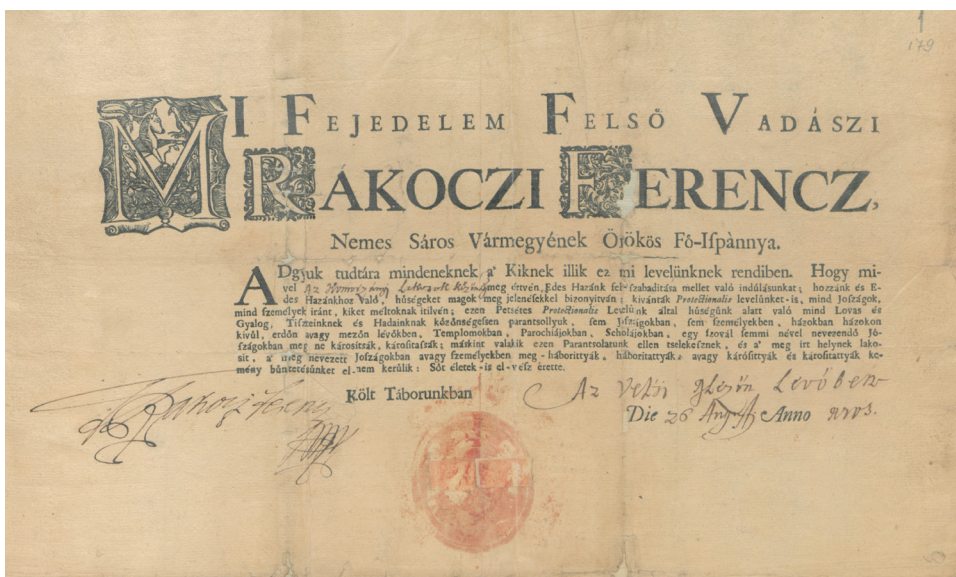 1
179
MI FEJEDELEM FELSŐ VADÁSZI
RÁKOCZI FERENCZ,
Nemes Sáros Vármegyének Örökös Fő-Ispànnya.
ADgyuk tudtára mindeneknek a' Kiknek illik ez mi levelünknek rendiben. Hogy mi-
vel Az meg értvén, Edes Hazánk fel-szabaditása mellet való indúlásunkat; hozzánk és E-
des Hazánkhoz való, hűségeket magok meg jelenésekkel bizonyitván; kivánták Protectionalis levelünket-is, mind Joszágok,
mind személyek iránt, kiket méltoknak itilvén; ezen Petsétes Protectionalis Levelünk által hűségünk alatt való mind Lovas és
Gyalog, Tiszteinknek és Hadainknak közönségessen parantsollyuk, sem Jószágokban, sem személyekben, házokban házokon
kivűl, erdőn avagy mezőn lévőkben, Templomokban, Parochiájokban, Scholájokban, egy szovál semmi névvel nevezendő Jó-
szágokban meg ne károsittsák, károsittassák; máskint valakik ezen Parantsolatunk ellen tselekesznek, és a' meg irt helynek lako-
sit, a' meg nevezett Joszágokban avagy személyekben meg-háborittyák, háborittattyák avagy károsittyák és károsittattyák ke-
mény büntetésünket el nem kerülik: Sőt életek-is el-vész érette.
Költ Táborunkban Az Vetsi Levöben
Rakoczi Ferenc
Die 26 Aug Anno 1703.